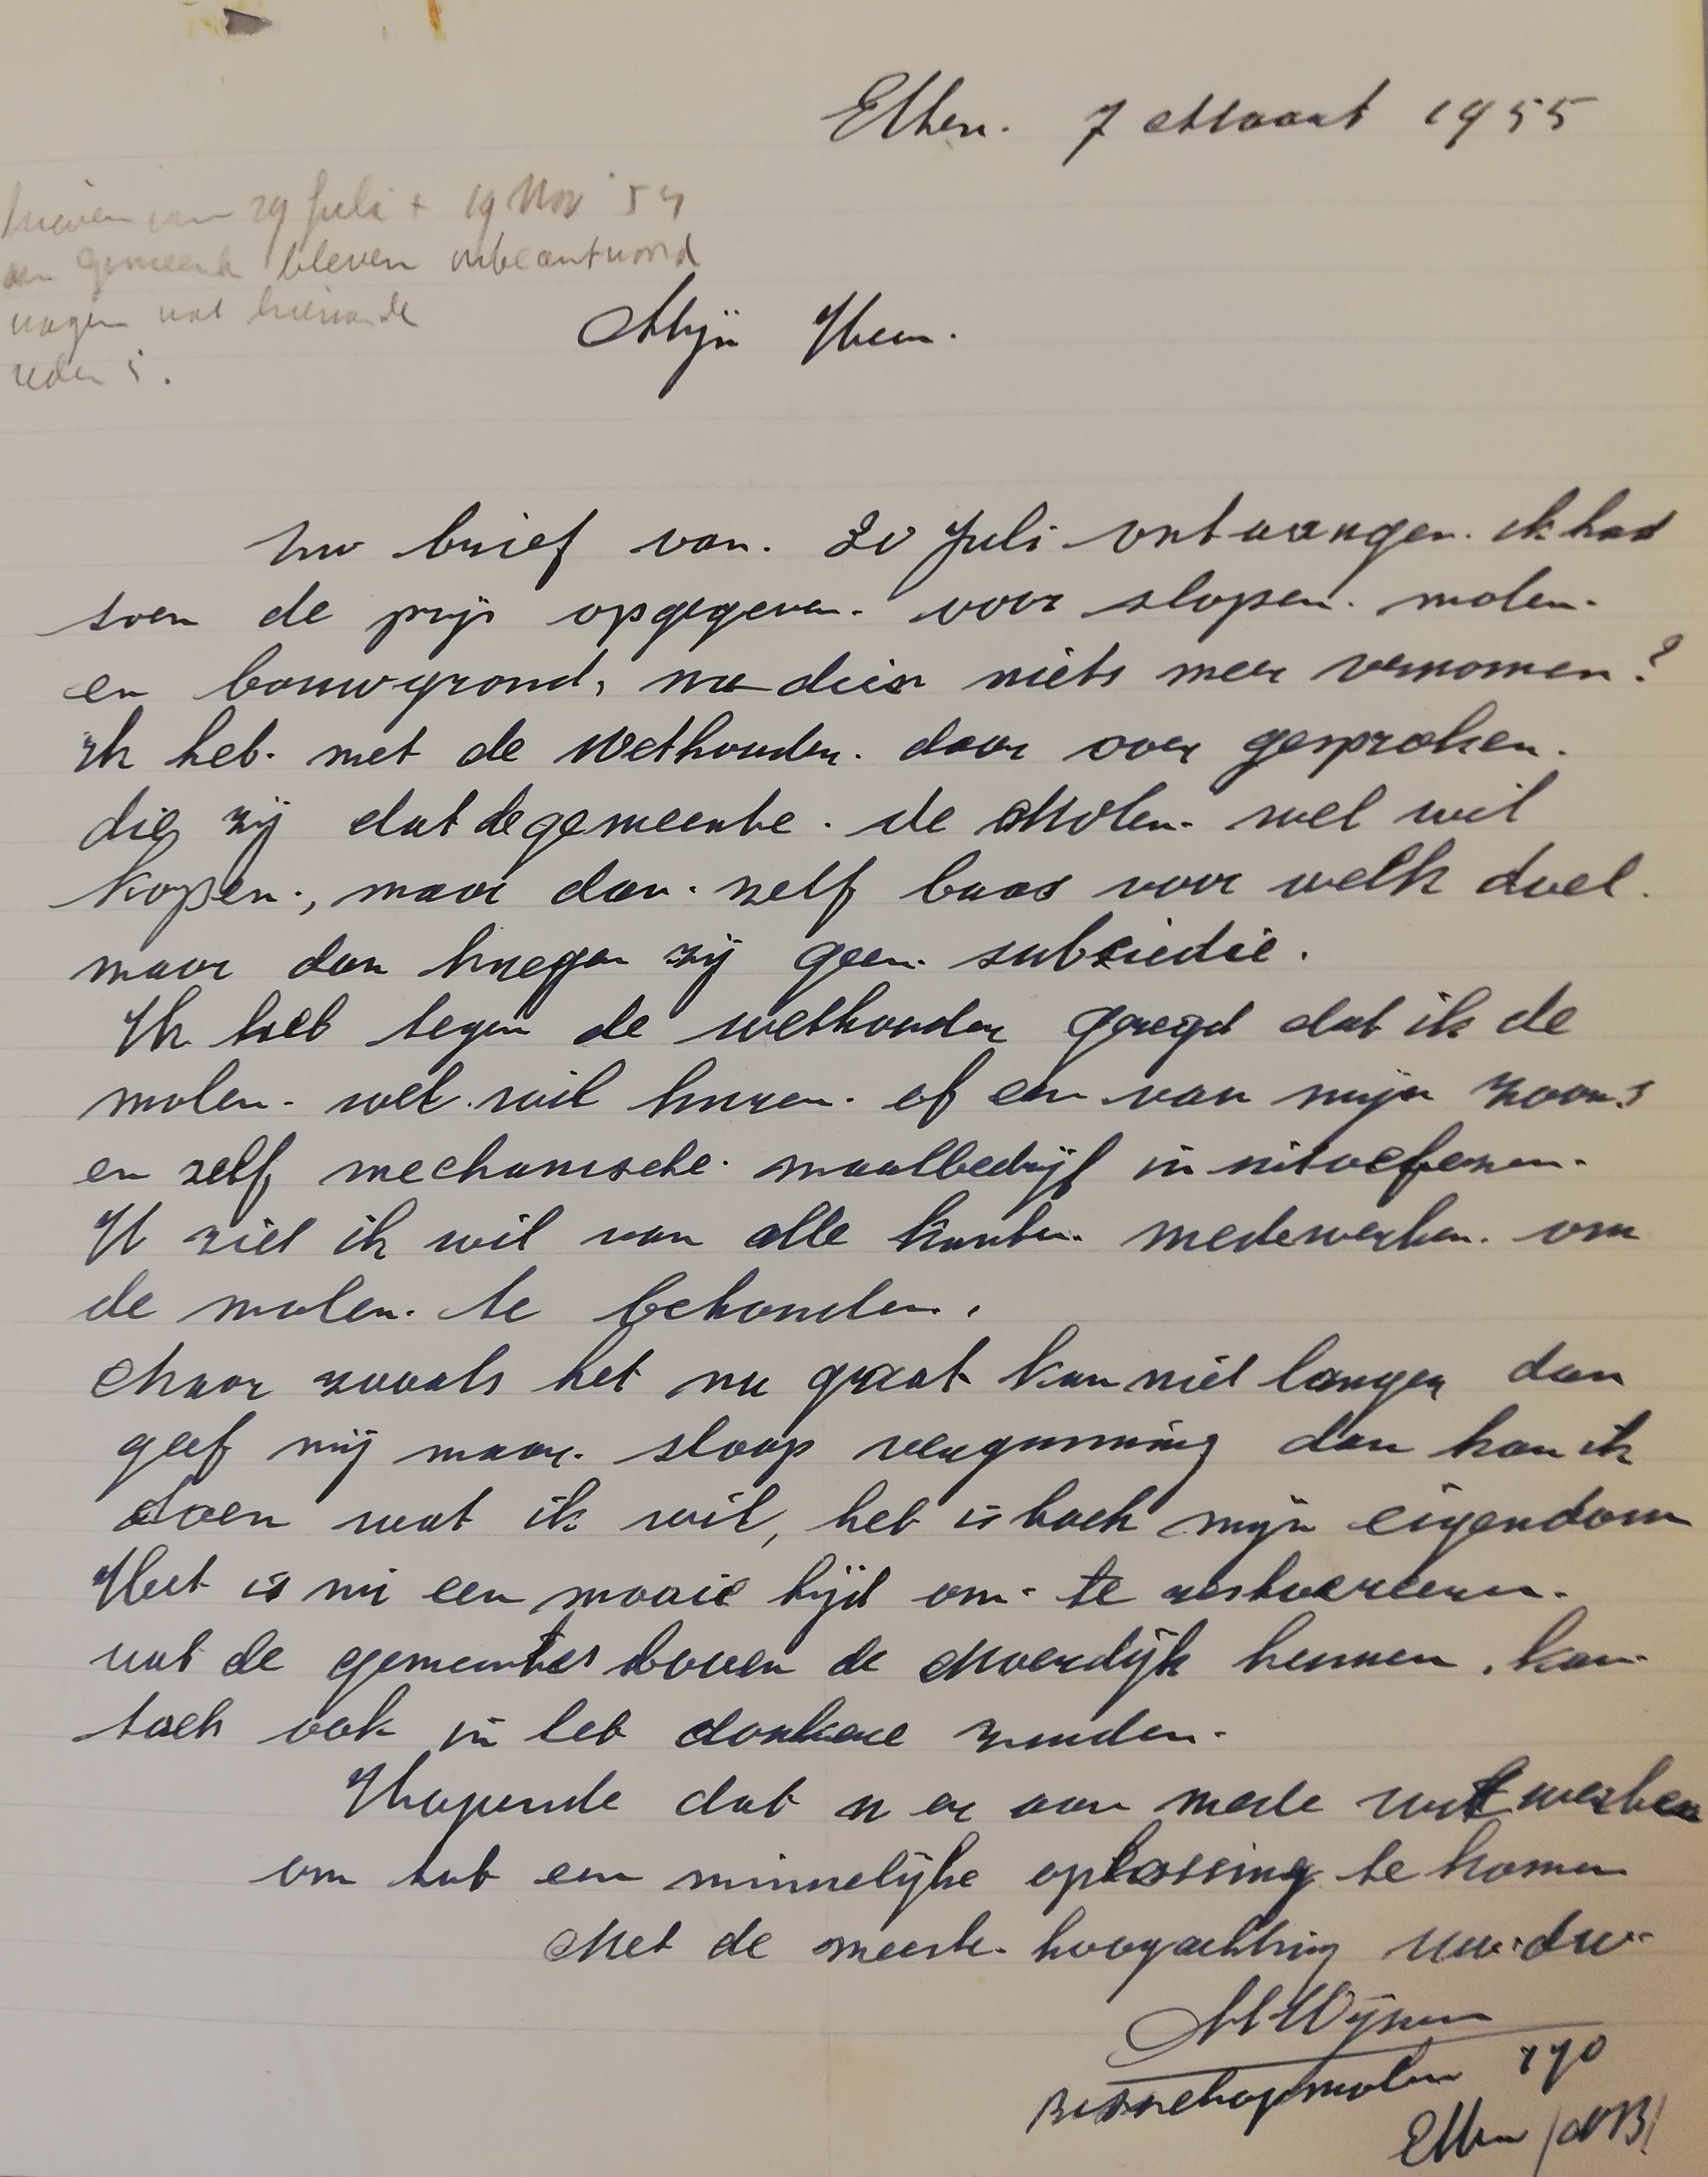 Etten. 7 Maart 1955
brieven van 29 Juli + 19 Nov '54
aan gemeente bleven onbeantwoord
vragen wat hiervan de
reden is.
Mijn Heer.
Uw brief van. 20 Juli ontvangen. ik had
toen de prijs opgegeven. voor slopen. molen.
en bouwgrond, na dien niets meer vernomen?
Ik heb. met de Wethouder. daar over gesproken.
die zij dat de gemeente. de Molen. wel wil
kopen., maar dan. zelf baas voor welk doel.
maar dan kregen zij geen. subsiedie.
Ik heb tegen de wethouder gezegd dat ik de
molen. wel wil huren. of een van mijn zoons
en zelf mechanische. maalbedrijf in uitoefenen.
U ziet ik wil van alle kanten. medewerken. om
de molen. te behouden.
Maar zooals het nu gaat kan niet langer dan
geef mij maar. sloop vergunning dan kan ik
doen wat ik wil, het is toch mijn eigendom
Het is nu een mooie tijd om. te restoereeren.
wat de gemeentes boven de Moerdijk kennen, kan
toch ook in het donkere zuiden.
Hopende dat u er aan mede wilt werken
om tot een minnelijke oplossing te komen
Met de meeste. hoogachting uw. dw.
M Wijnen
Bisschopsmolen 170
Etten (NB)